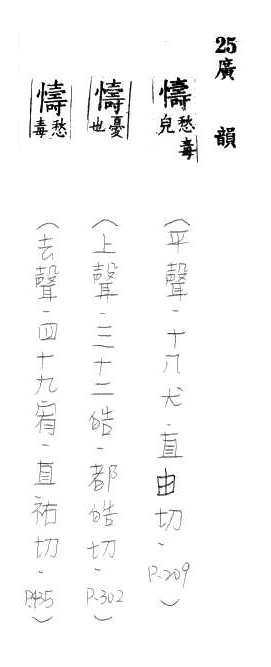 25廣韻
懤愁毒皃
(平聲.十八尤.直由切.P.209)
懤憂也
(上聲.三十二皓.都皓切.P.302)
懤愁毒
(去聲.四十九宥.直祐切.P.435)